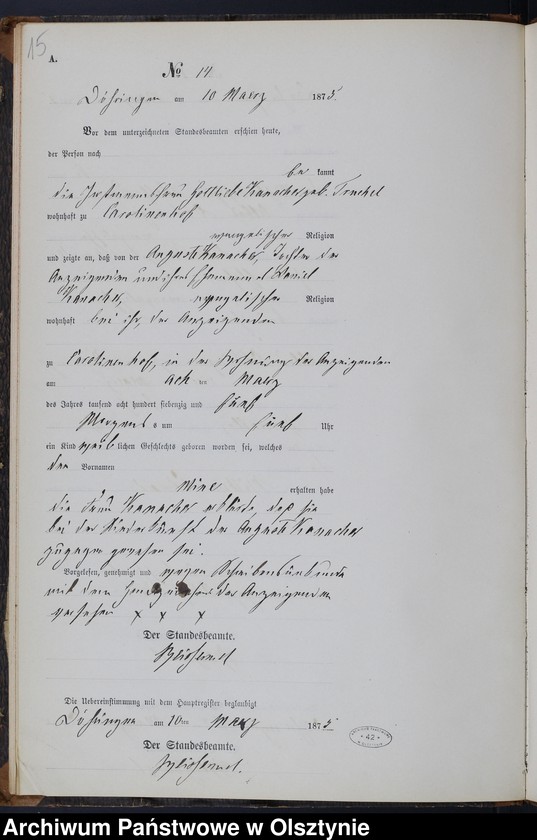 15
A.
No 14
Döhringen am 10 Maerz 1875.
Vor dem unterzeichneten Standesbeamten erschien heute,
der Person nach
be kannt
die Instmannsfrau Gottliebe Kanacher geb. Truchel
wohnhaft zu Carolinenhof
evangelischer Religion
und zeigte an, daß von der Auguste Kanacher, Tochter der
Anzeigenden und ihres Ehemannes Daniel
Kanacher, evangelischer Religion
wohnhaft bei ihr, der Anzeigenden
zu Carolinenhof, in der Wohnung der Anzeigenden
am ach ten Maerz
des Jahres tausend acht hundert siebenzig und fünf
Morgens um fünf Uhr
ein Kind weib lichen Geschlechts geboren worden sei, welches
den Vornamen
Mine erhalten habe
die Frau Kanacher erklärte, daß sie
bei der Niederkunft der Auguste Kanacher
zugegen gewesen sei.
Vorgelesen, genehmigt und wegen Schreibensunkunde
mit dem Handzeichen der Anzeigenden
versehen x x x
Der Standesbeamte.
Die Uebereinstimmung mit dem Hauptregister beglaubigt
Döhringen am 10ten Maerz 1875
Der Standesbeamte.
42
Archiwum Państwowe w Olsztynie